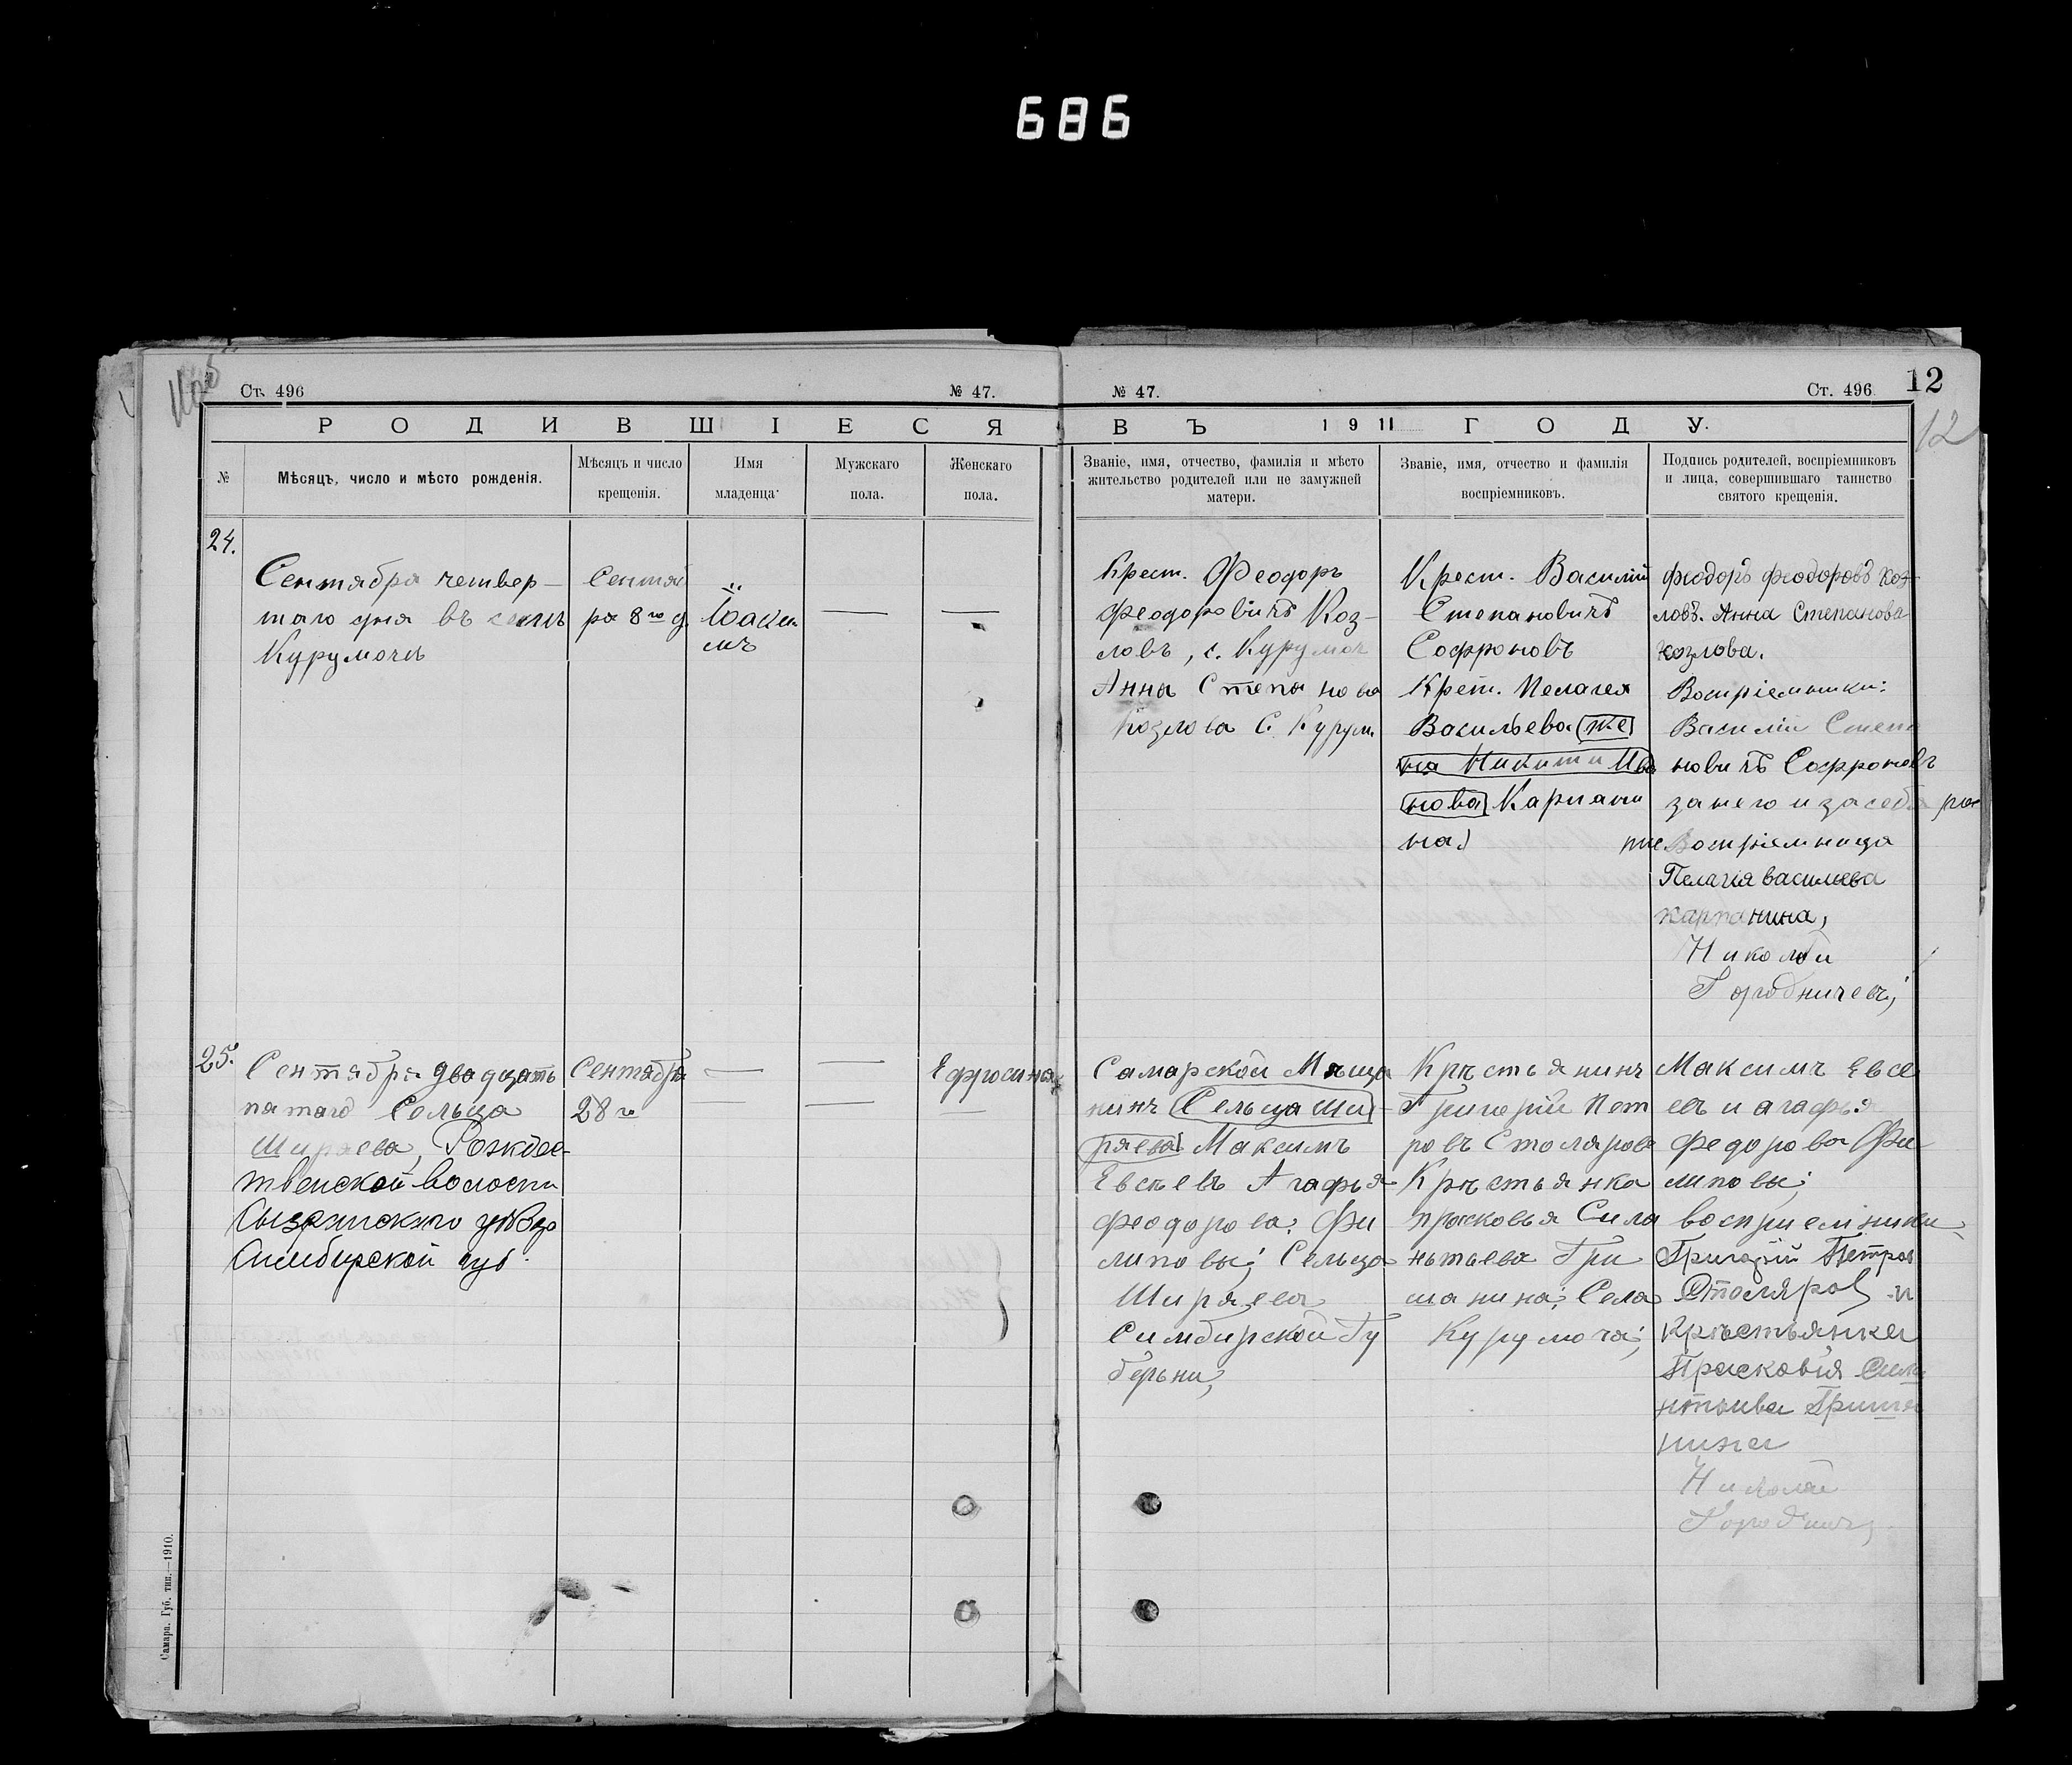 686
Ст. 496
№ 47.
№ 47.
Ст. 496.
12
12
РОДИВШІЕСЯ
ВЪ 1911 ГОДУ.
№
Мѣсяцъ, число и мѣсто рожденія.
Мѣсяцъ и число
крещенія.
Имя
младенца.
Мужскаго
пола.
Женскаго
пола.
Званіе, имя, отчество, фамилія и мѣсто
жительство родителей или не замужней
матери.
Званіе, имя, отчество и фамилія
воспріемниковъ.
Подпись родителей, воспріемниковъ
и лица, совершившаго таинство
святого крещенія.
24.
Сентября четвер-
таго дня въ селѣ
Курумочѣ
Сентяб
ря 8го д.
Іоаки
мъ
—
—
Крест. Феодоръ
Феодоровичъ Коз-
ловъ, с. Курумоч
Анна Степанова
Козлова С. Курум.
Крест. Василій
Степановичъ
Софроновъ
Крест. Пелагея
Васильева (же
на Никити Ива
нова) Карпани
на.
Феодоръ Феодоровъ Коз-
ловъ. Анна Степанова
Козлова.
Воспріемники:
Василій Степа
новичъ Софроновъ
за него и за себя рос
пис Воспріемница
Пелагія Василева
Карпанина,
Николай
Городничевъ;
25.
Сентября двадцать
пятаго Сельца
Ширяева, Рождес-
твенской волости
Сызранскаго уѣзда
Симбирской губ.
Сентября
28го
—
—
—
—
Ефросинья
—
Самарской Мѣща
нинъ (Сельца Ши
ряева) Максимъ
Евсѣевъ Агафья
Феодорова Фи
липовы; Сельца
Ширяева
Симбирской Гу
берьни;
Крѣстьянинъ
Григорій Пет
ровъ Столяровъ
Крѣстьянка
Прасковья Сила
нтьева Гри
шанина; Села
Курумоча;
Максимъ Евсе
евъ и агафья
Федорова Фи
липовы;
воспріемники
Григорій Петров
Столяров и
Крѣстьянка
Прасковія Сила
нтьива Гриша
нина
Николай
Самара. Губ. тип.—1910.